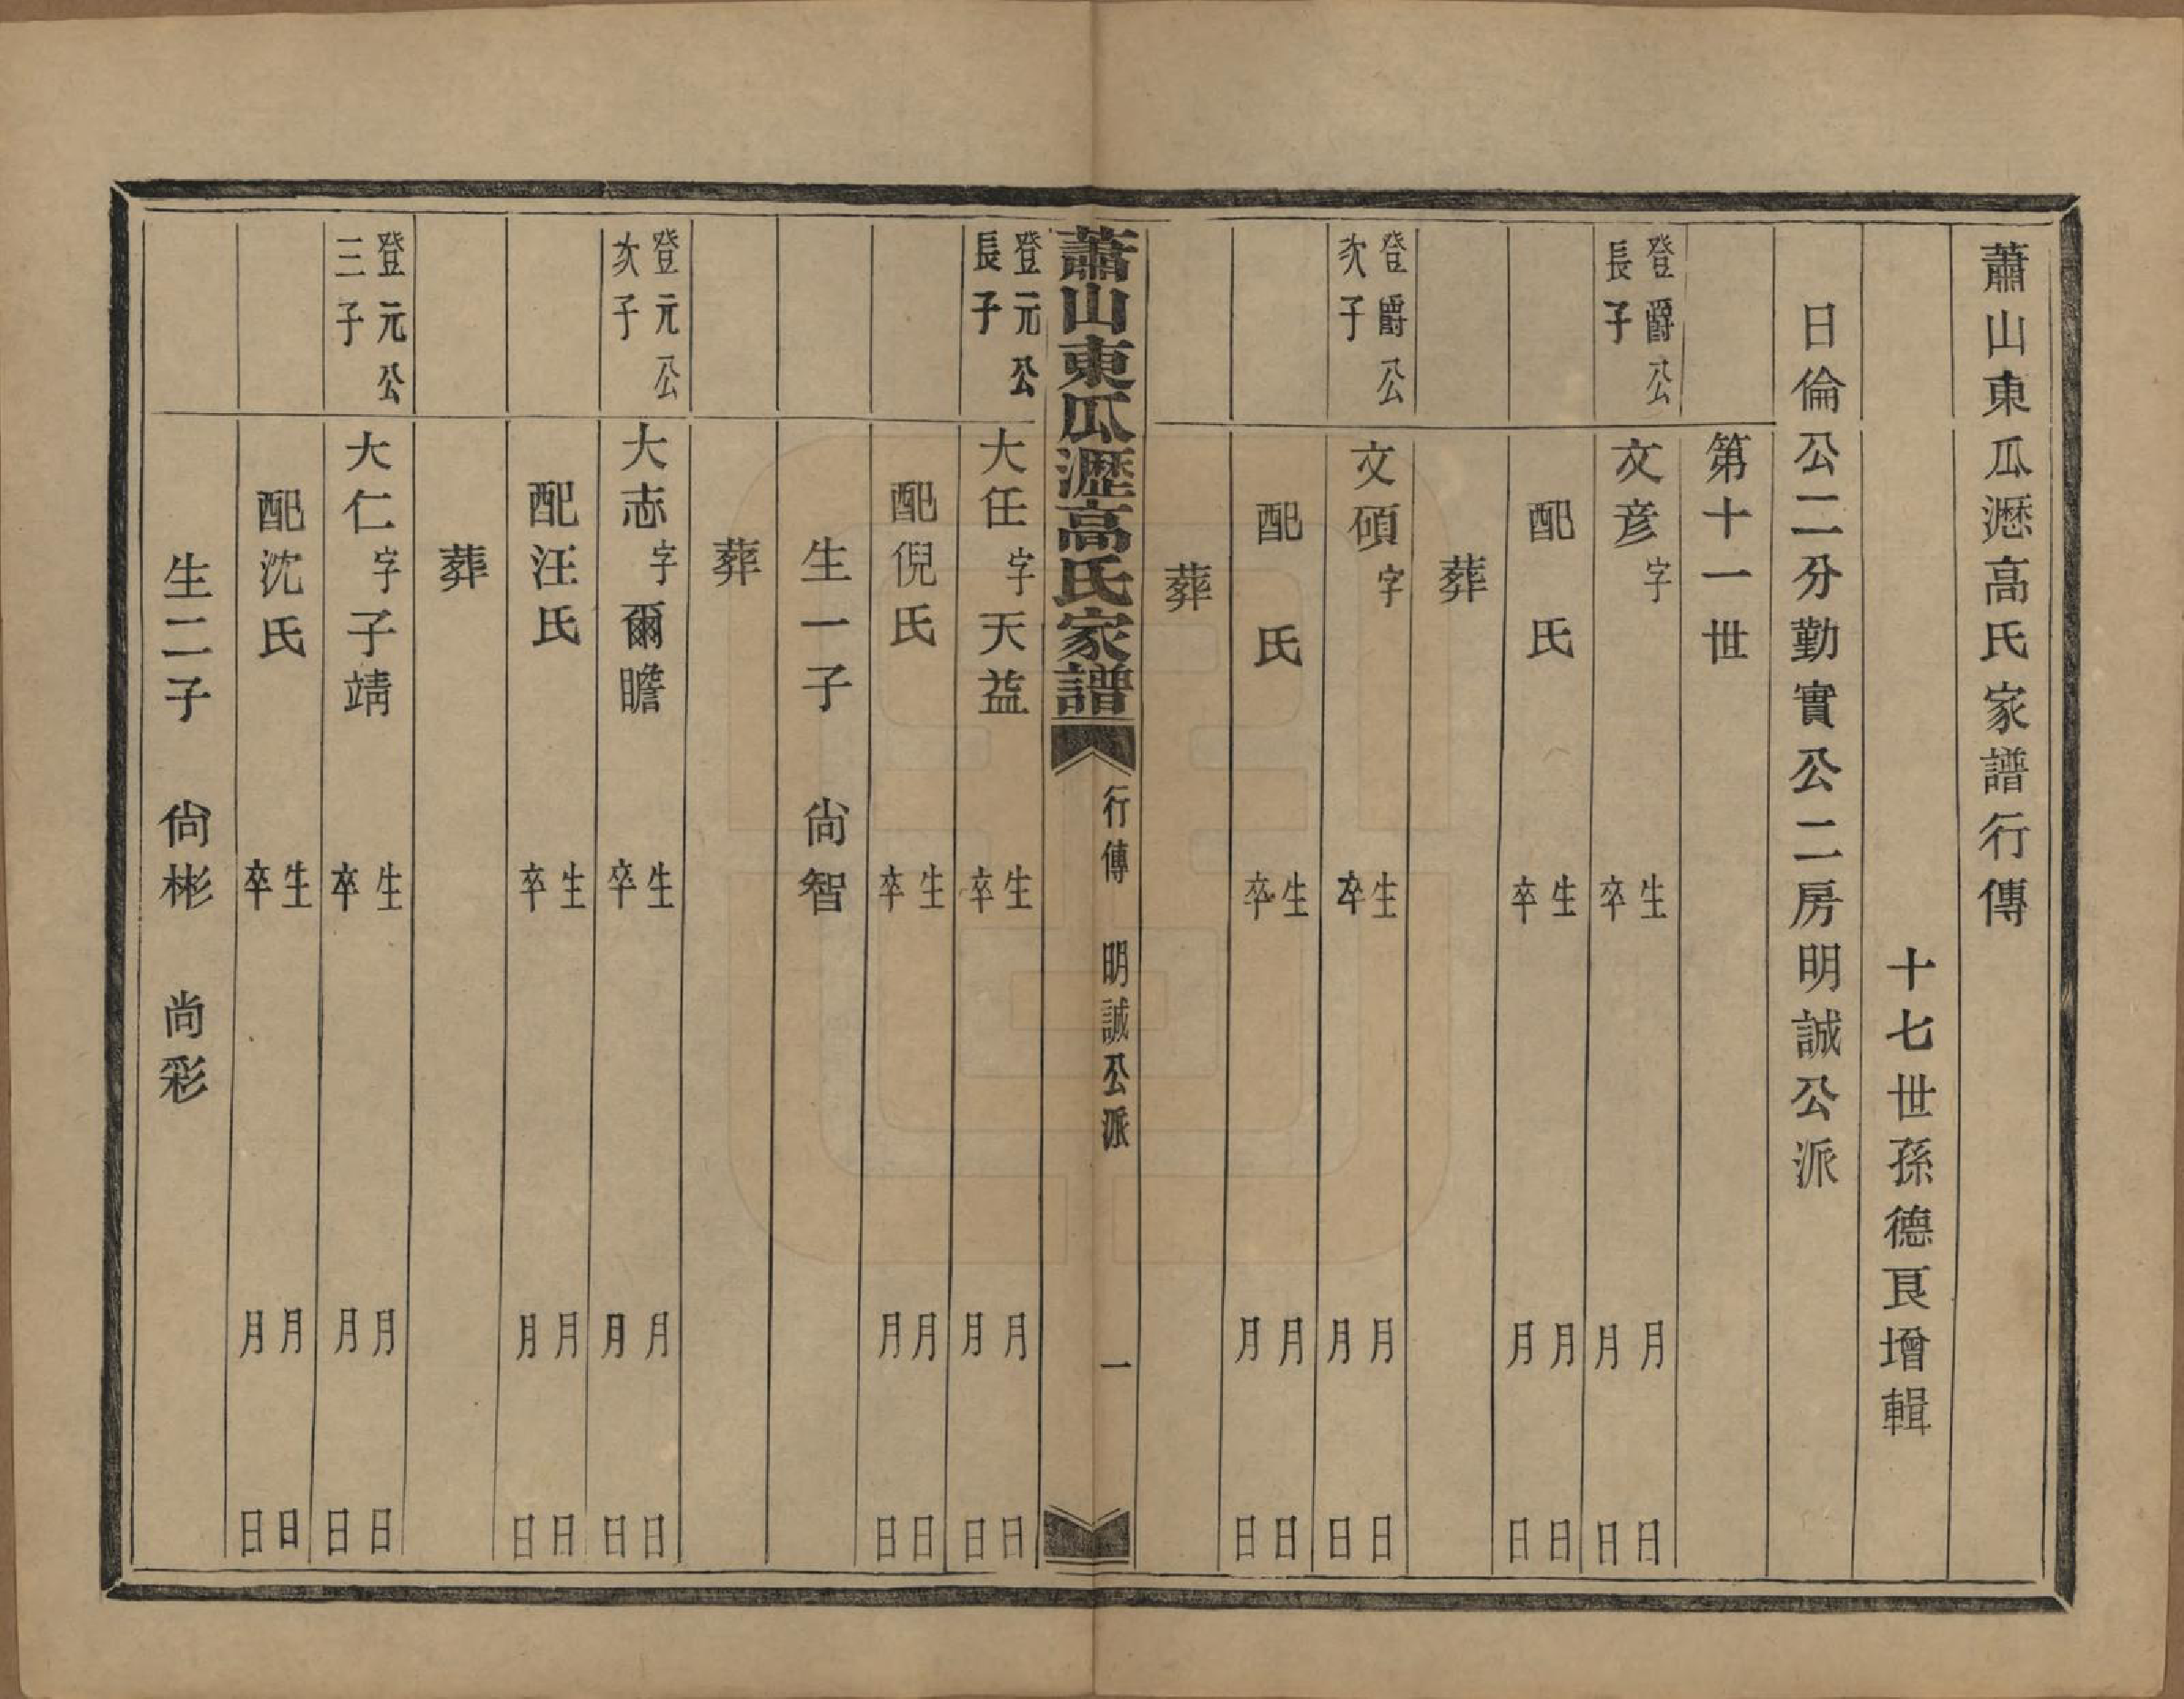 蕭山東瓜瀝高氏家譜行傳
十七世孫德良增輯
日倫公二分勤實公二房明誠公派
第十一世
登爵公
長子
文彥字
生 月 日
卒 月 日
配 氏
生 月 日
卒 月 日
葬
登爵公
次子
文碩字
生 月 日
卒 月 日
配 氏
生 月 日
卒 月 日
葬
蕭山東瓜瀝高氏家譜 行傳 明誠公派 一
登元公
長子
大任字天益
生 月 日
卒 月 日
配倪氏
生 月 日
卒 月 日
生一子 尙智
葬
登元公
次子
大志字爾瞻
生 月 日
卒 月 日
配汪氏
生 月 日
卒 月 日
葬
登元公
三子
大仁字子靖
生 月 日
卒 月 日
配沈氏
生 月 日
卒 月 日
生二子 尙彬 尚彩